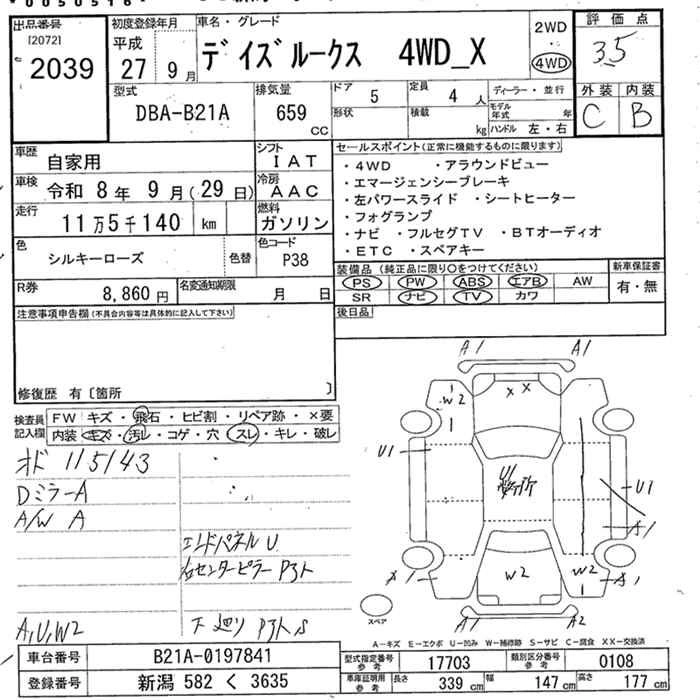 出品番号
[2072]
2039
初度登録年月
平成
27年 9月
車名・グレード
デイズルークス 4WD_X
2WD
4WD
評価点
3.5
外装 内装
C B
型式
DBA-B21A
排気量
659
CC
ドア 5
定員 4 人
形状
積載 kg
ディーラー・並行
モデル年式 年
ハンドル 左・右
車歴
自家用
シフト
IAT
車検
令和 8年 9月(29日)
冷房
AAC
走行
11万5千140 km
燃料
ガソリン
色
シルキーローズ
色替
色コード
P38
R券
8,860円
名変通知期限
月 日
セールスポイント(正常に機能するものに限ります)
・4WD ・アラウンドビュー
・エマージェンシーブレーキ
・左パワースライド ・シートヒーター
・フォグランプ
・ナビ ・フルセグTV ・BTオーディオ
・ETC ・スペアキー
装備品(純正品に限り○をつけてください)
PS PW ABS エアB AW
SR ナビ TV カワ
新車保証書
有・無
後日品
注意事項申告欄(不具合内容等は具体的に記入して下さい)
修復歴 有〔箇所 〕
検査員記入欄
FW キズ・飛石・ヒビ割・リペア跡・×要
内装 キズ・汚レ・コゲ・穴・スレ・キレ・破レ
オド 115143
DミラーA
A/W A
エンドパネル U
右センターピラー P3ト
A,U,W2
下廻り P3ト S
A1 A1
W2
X X
U1
U1
A1
W2
X1
A1
A1 A2
スペア
A-キズ E-エクボ U-凹み W-補修跡 S-サビ C-腐食 XX-交換済
車台番号
B21A-0197841
登録番号
新潟 582 く 3635
型式指定番号
参考
17703
類別区分番号
参考
0108
車庫証明用
参考
長さ 339 cm
幅 147 cm
高さ 177 cm